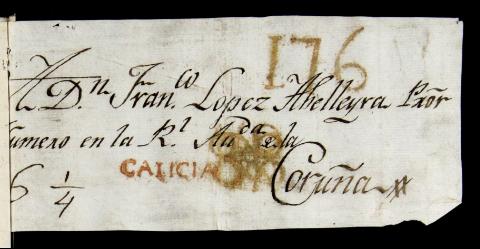 176
A Dn. Franco. Lopez Abelleyra Pror
Numero en la Rl. Auda. de la
GALICIA
6 1/4 Coruña